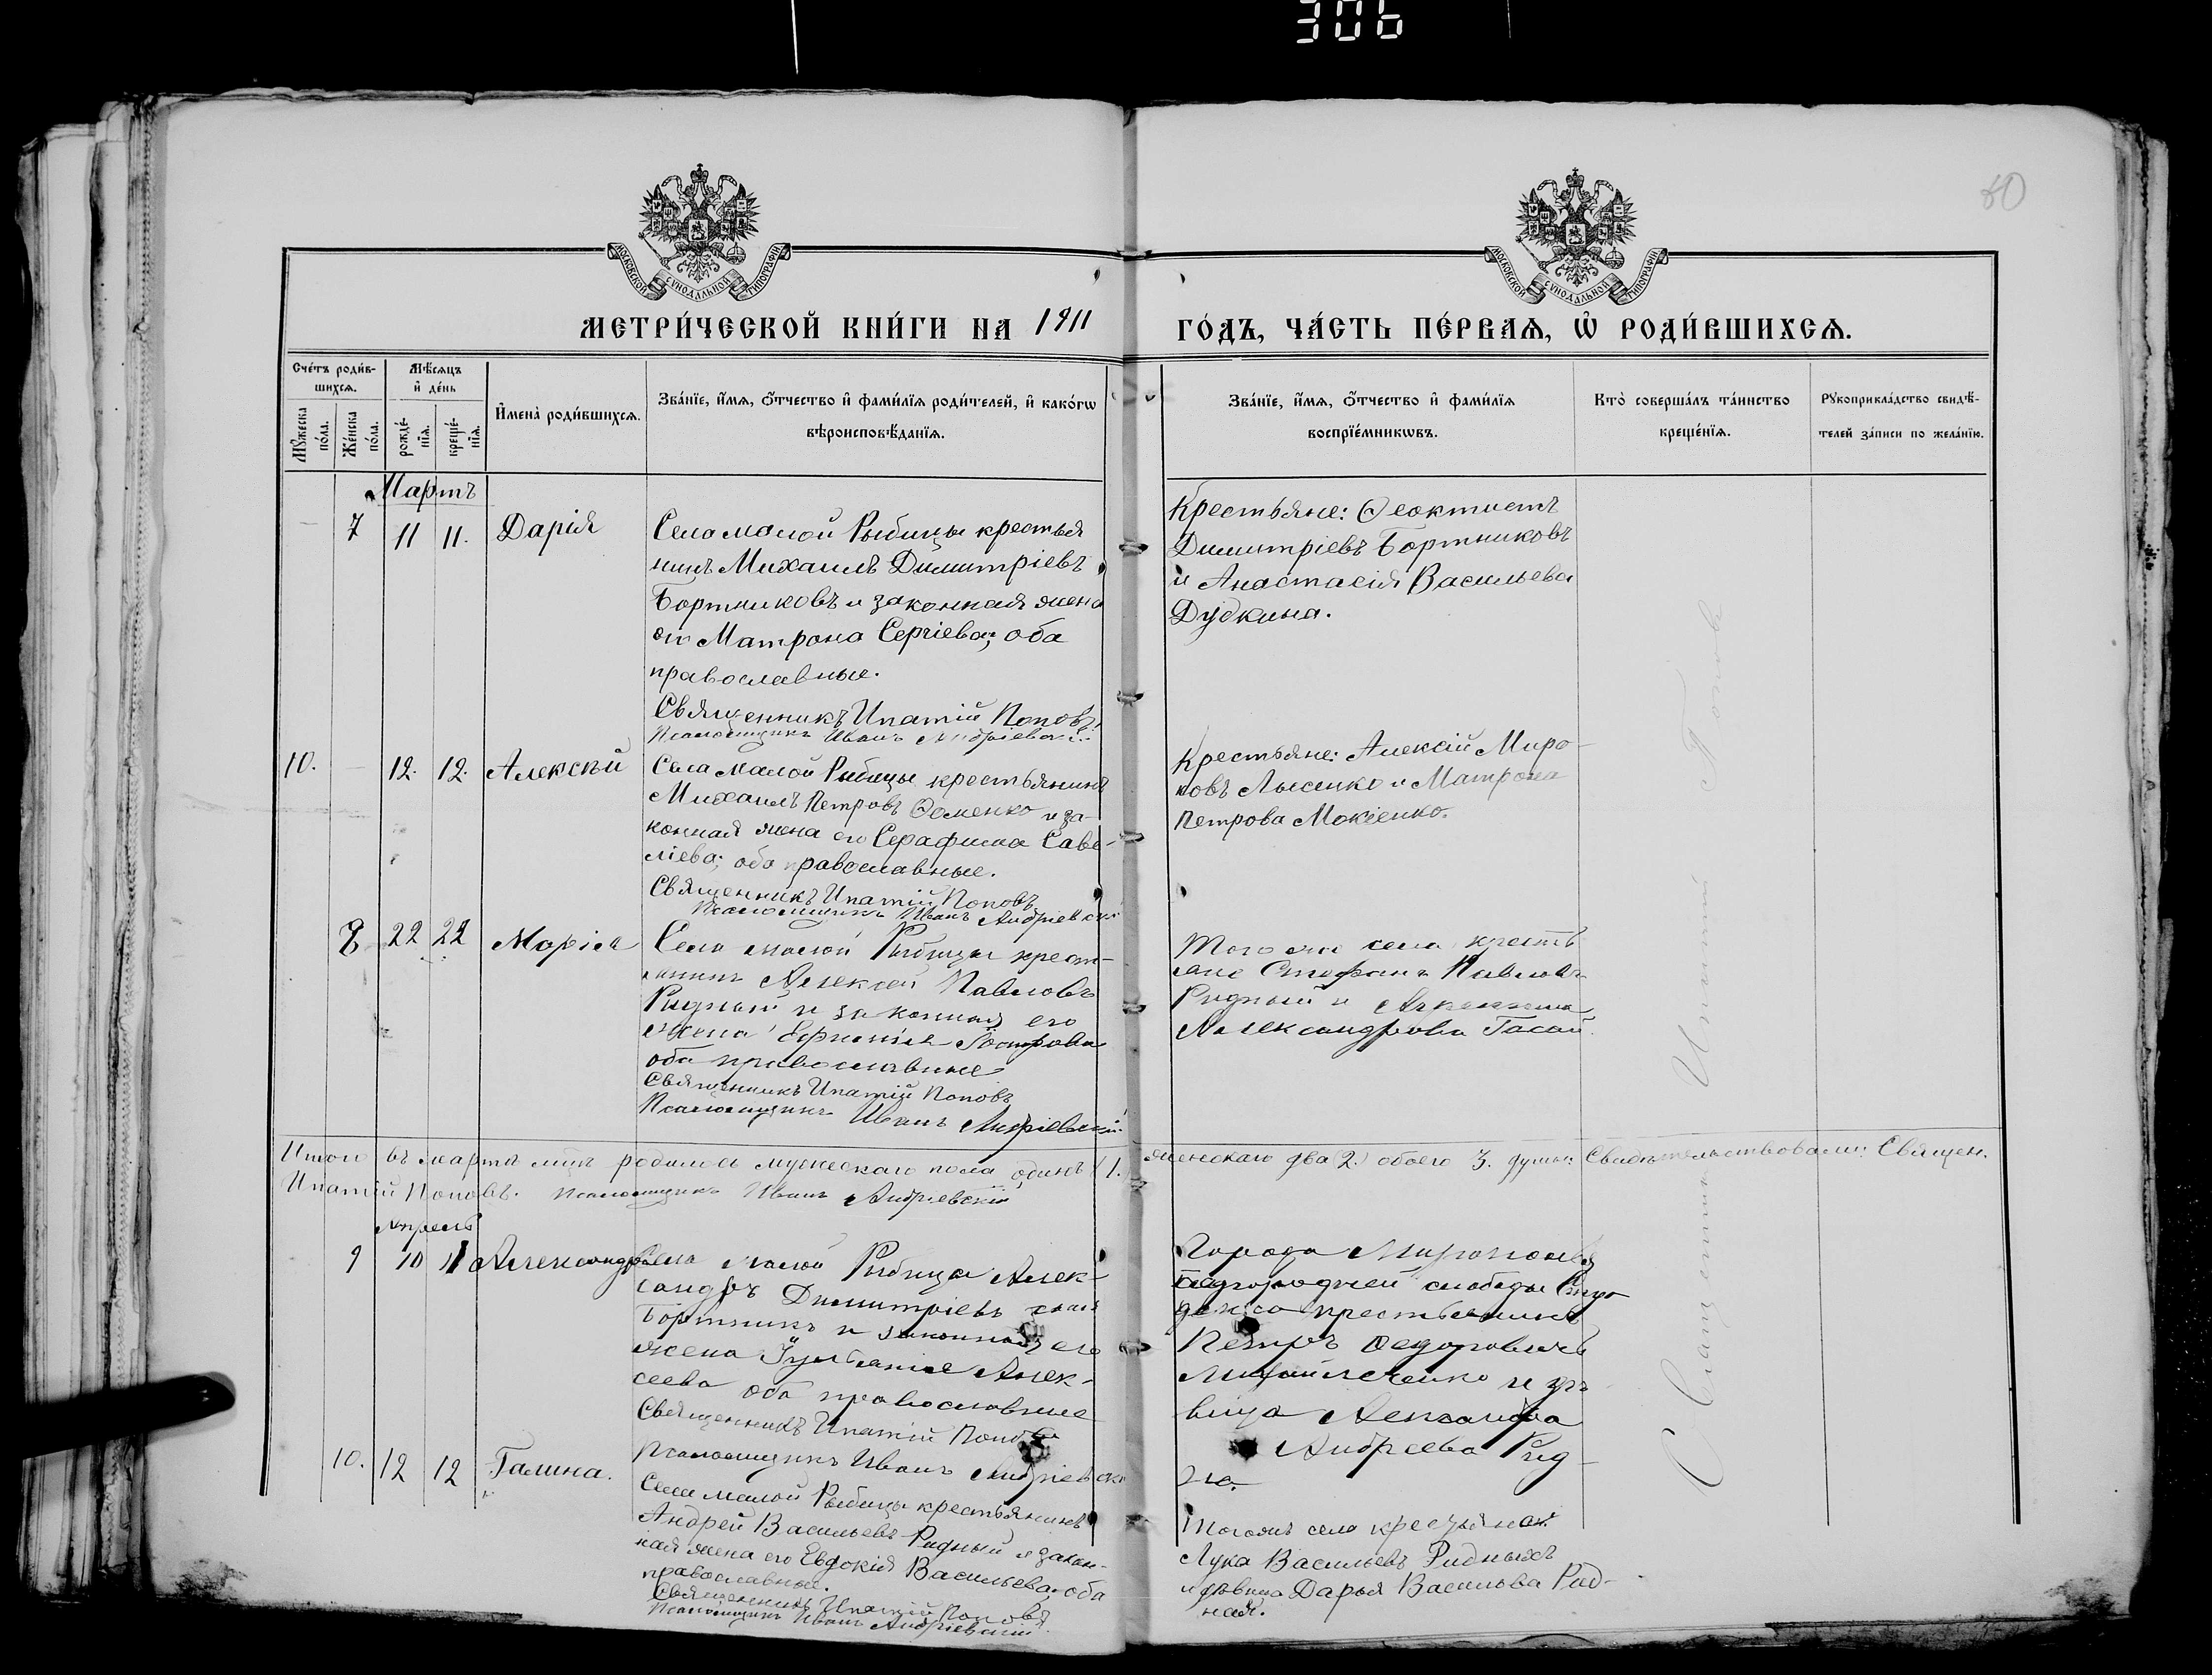 306
60
МОСКОВСКОЙ СѴНОДАЛЬНОЙ ТИПОГРАФІИ
МОСКОВСКОЙ СѴНОДАЛЬНОЙ ТИПОГРАФІИ
МЕТРИ́ЧЕСКОЙ КНИ́ГИ НА 1911
ГО́ДЪ, ЧА́СТЬ ПЕ́РВАѦ, Ѡ҆ РОДИ́ВШИХСѦ.
Сче́тъ роди́в-
шихсѧ.
Мꙋ́жеска по́ла.
Же́нска по́ла.
Мѣ́сѧцъ
и҆ де́нь
рожде́-
нїѧ.
креще́-
нїѧ.
И҆мена̀ роди́вшихсѧ.
Зва́нїе, и҆́мѧ, ѻ҆́тчество и҆ фами́лїѧ роди́телей, и҆ како́гѡ
вѣроисповѣ́данїѧ.
Зва́нїе, и҆́мѧ, ѻ҆́тчество и҆ фами́лїѧ
воспрїе́мникѡвъ.
Кто̀ соверша́лъ та́инство
креще́нїѧ.
Рꙋкоприкла́дство свидѣ́-
телей за́писи по жела́нїю.
Мартъ
7 11 11. Дарія
Села малой Рыбицы крестья
нинъ Михаилъ Димитріевъ
Бортниковъ и законная жена
его Матрона Сергіева; оба
православные.
Священникъ Ипатій Поповъ
Псаломщикъ Иванъ Андріевскій
Крестьяне: Ѳеоктистъ
Димитріевъ Бортниковъ
и Анастасія Васильева
Дудкина.
10. 12. 12. Алексѣй
Села малой Рыбицы крестьянинъ
Михаилъ Петровъ Ѳоменко и за-
конная жена его Серафима Саве-
ліева; оба православные.
Священникъ Ипатій Поповъ
Псаломщикъ Иванъ Андріевскій
Крестьяне: Алексій Миро-
новъ Лысенко и Матрона
Петрова Мокіенко.
8 22 22 Марія
Села малой Рыбицы крест-
янинъ Алексей Павловъ
Ридный и законная его
жена
оба православные
Священникъ Ипатій Поповъ
Псаломщикъ Иванъ Андріевскій
Того же села кресть
яне Стефанъ Павловъ
Ридный и
Александрова
Итого въ мартѣ м-цѣ родилось мужескаго пола одинъ (1.) женскаго два (2.) обоего 3. души: Свидѣтельствовали: Священ.
Ипатій Поповъ. Псаломщикъ Иванъ Андріевскій
Апрель
9 10 11 Александра
Села малой Рыбицы Алек-
сандръ Димитріевъ сынъ
Бортникъ и законная его
жена Алек-
сеева оба православные
Священникъ Ипатій Поповъ
Псаломщикъ Иванъ Андріевскій
Города Мирополья
подгородней слободы
крестьянинъ
Петръ Ѳедоровичъ
Михайличенко и дѣ-
вица Александра
Андреева Рид-
на.
10. 12 12 Галина.
Села малой Рыбицы крестьянинъ
Андрей Васильевъ Ридный и закон-
ная жена его Евдокія Васильева оба
православные.
Священникъ Ипатій Поповъ
Псаломщикъ Иванъ Андріевскій
Тогожъ села крестьяне:
Лука Васильевъ Ридныхъ
и дѣвица Дарья Васильева Рид-
ная.
Священникъ Ипатій Поповъ